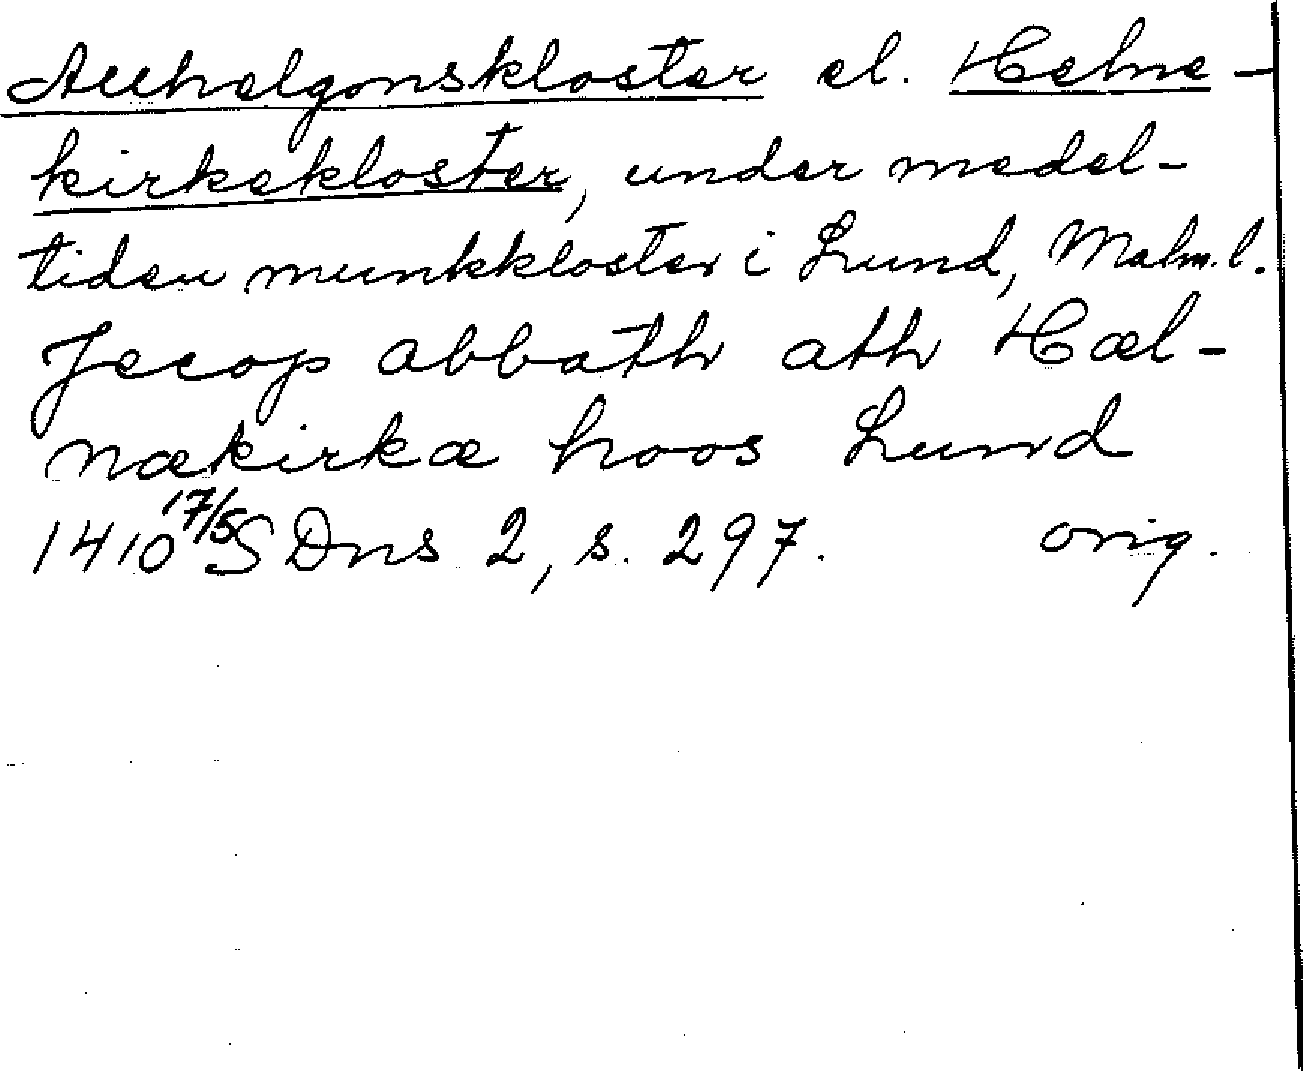 Allhelgonskloster el. Helne-
kirkekloster, under medel-
tiden munkkloster i Lund, Malm. l.
Jecop abbath ath Hæl-
nækirkæ hoos Lund
1410 17/5 SDns 2, s. 297. orig.